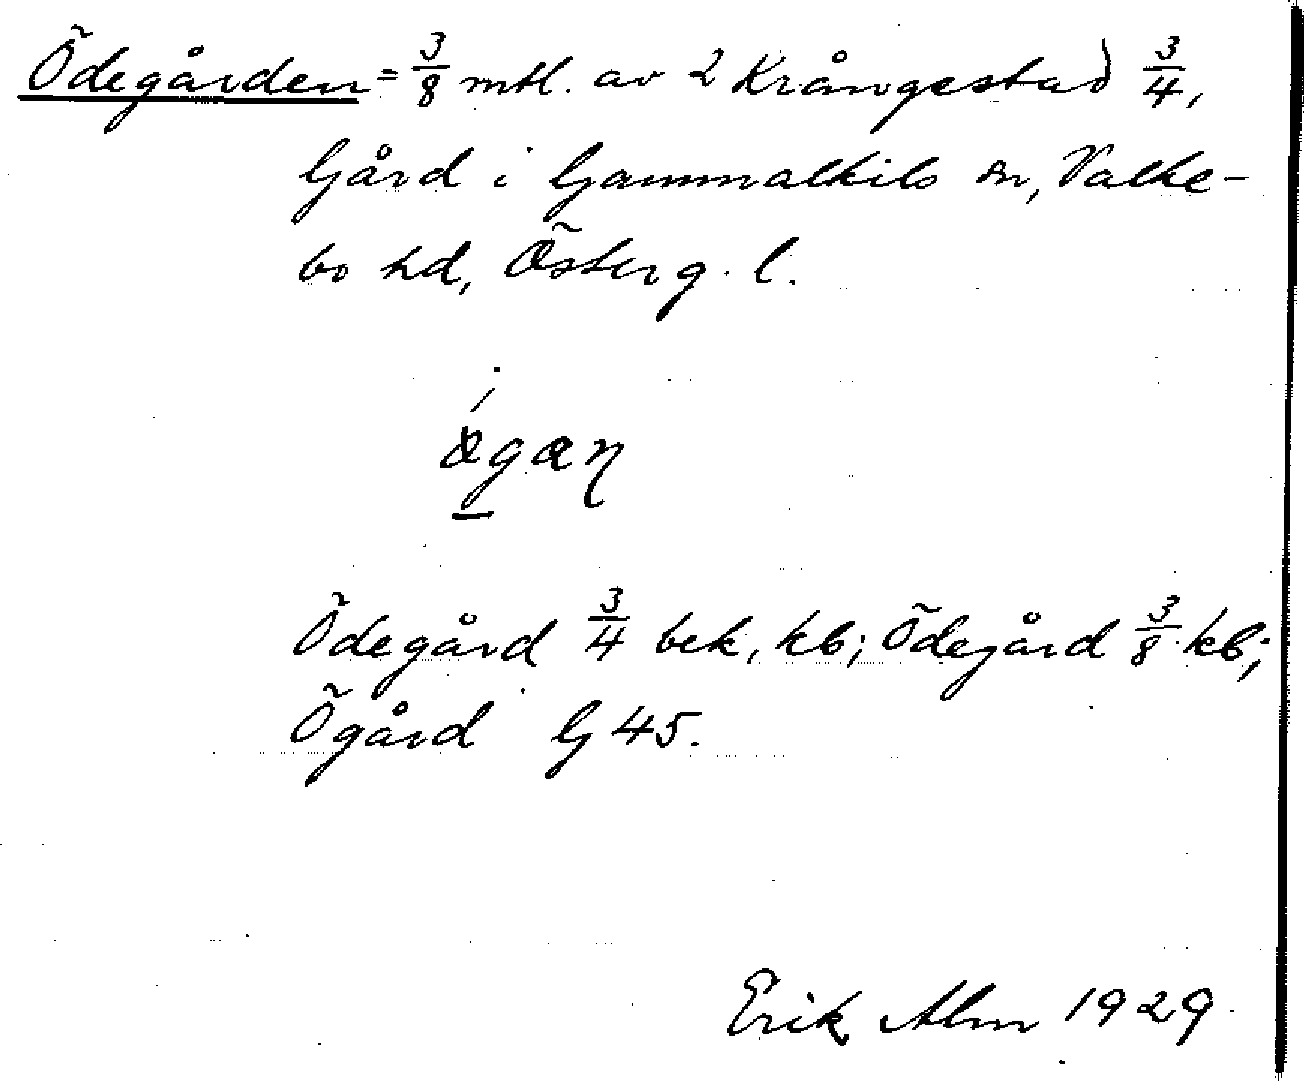 Ödegården = 3/8 mtl. av 2 Krångestad 3/4,
Gård i Gammalkils sn, Valke-
bo hd, Österg. l.
ǿgæɳ
Ödegård 3/4 bek, kb; Ödegård 3/8 kb;
Ögård G 45.
Erik Alm 1929